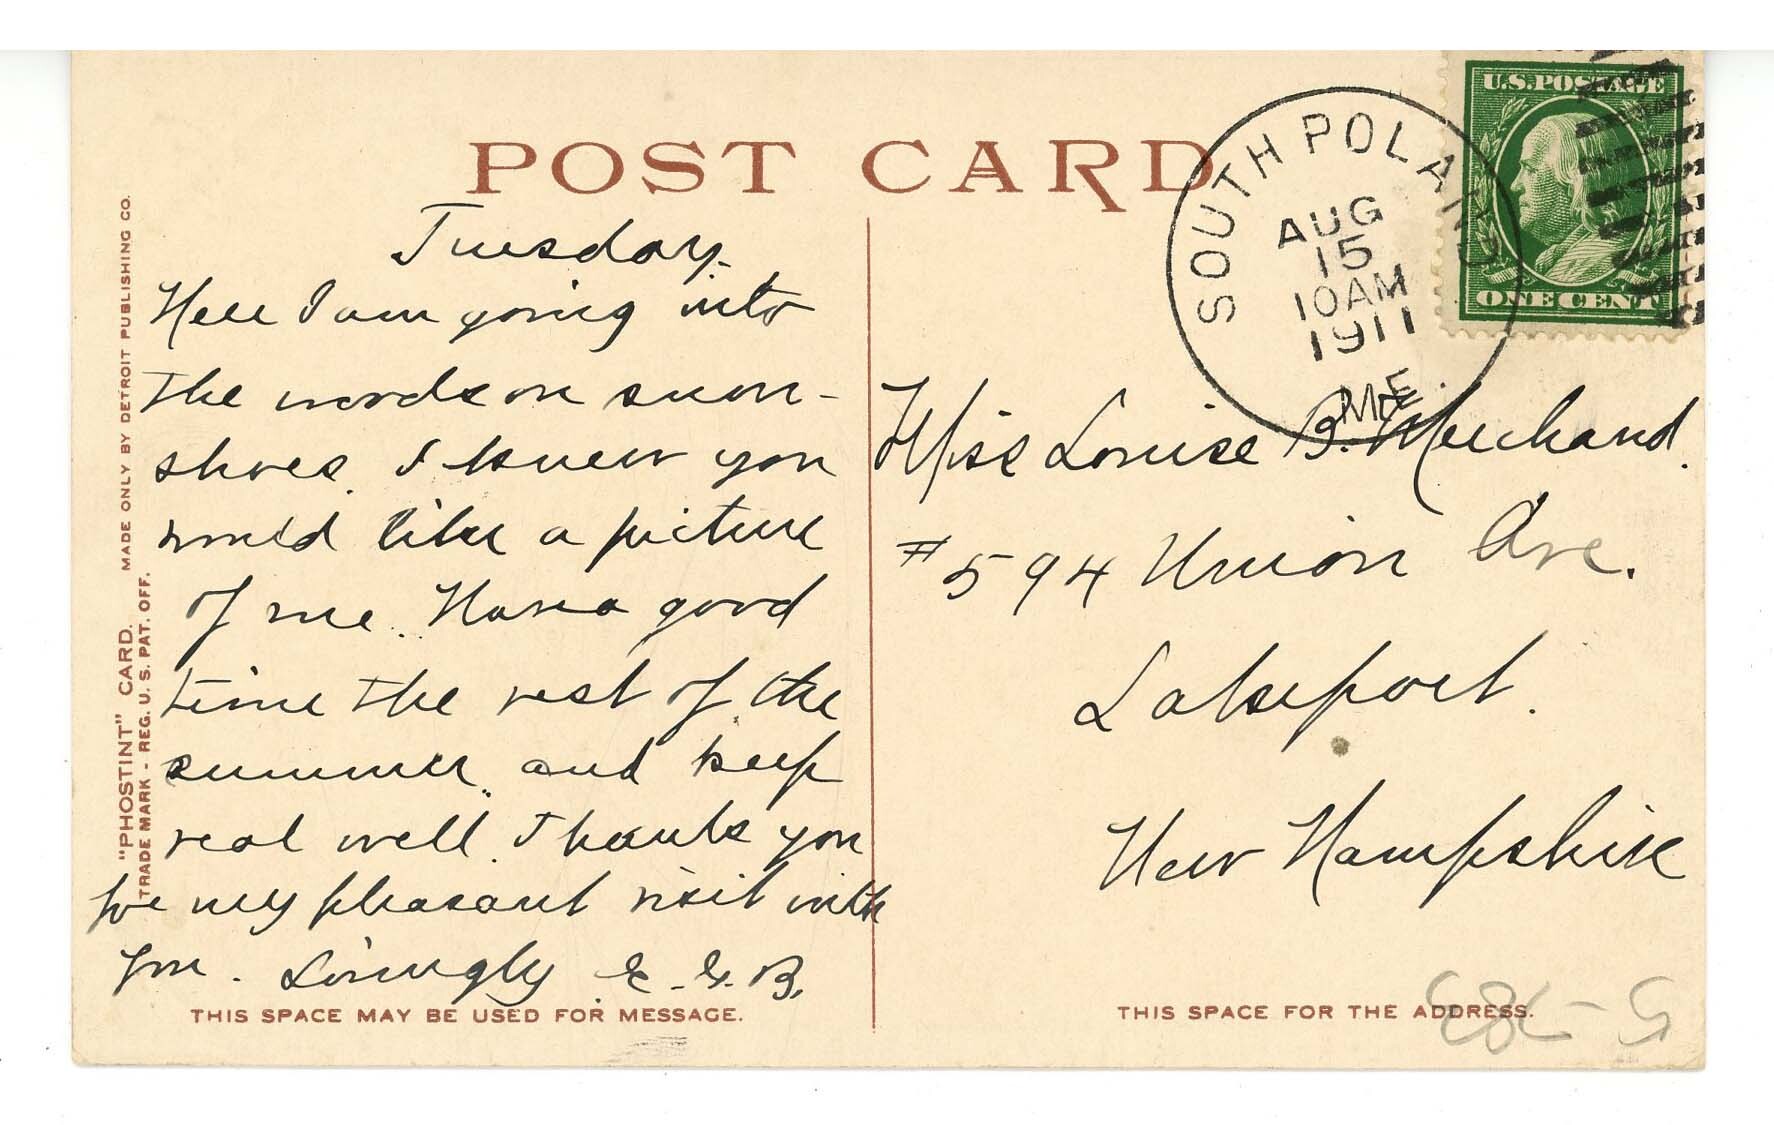 POST CARD
U.S. POSTAGE
ONE CENT
SOUTH POLAND
AUG
15
10 AM
1911
ME.
Tuesday.
Here I am going into
the woods on snow-
shoes. I knew you
would like a picture
of me. Have a good
time the rest of the
summer, and keep
real well. Thank you
for my pleasant visit with
you. Lovingly E. G. B.
THIS SPACE MAY BE USED FOR MESSAGE.
Miss Louise B. Merchand.
#594 Union Ave.
Lakeport.
New Hampshire
THIS SPACE FOR THE ADDRESS.
"PHOSTINT" CARD. MADE ONLY BY DETROIT PUBLISHING CO.
TRADE MARK - REG. U. S. PAT. OFF.